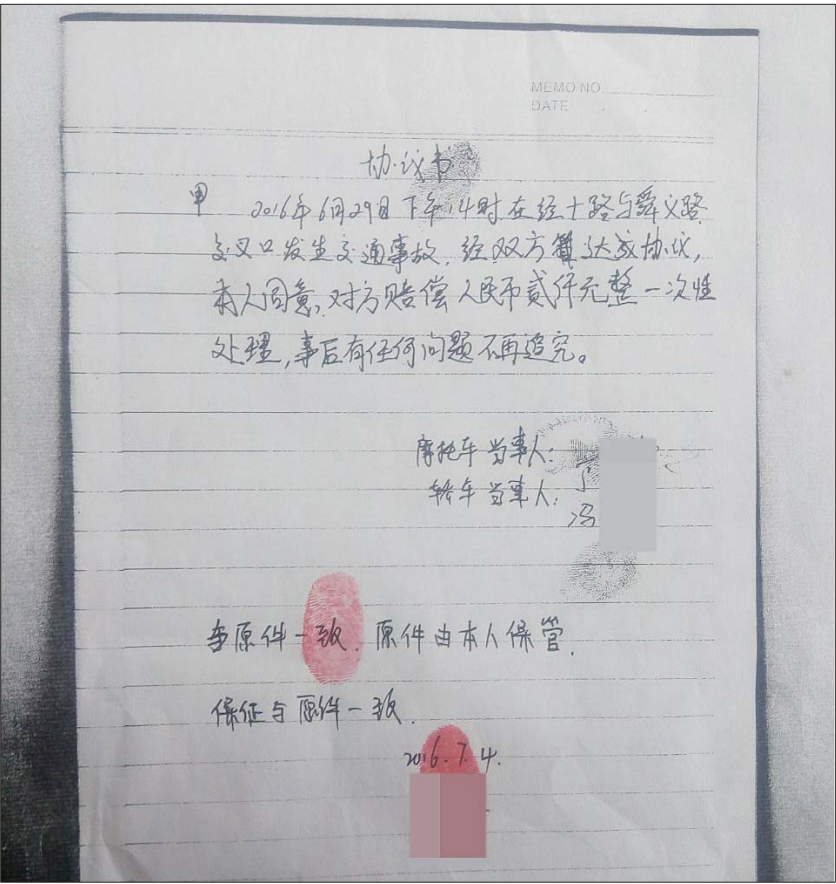 MEMO NO.
DATE
协议书
甲 2016年6月29日下午14时在经十路与舜义路
交叉口发生交通事故,经双方达成协议,
本人同意,对方赔偿人民币贰仟元整一次性
处理,事后有任何问题不再追究。
摩托车当事人:
轿车当事人:
冯
与原件一致.原件由本人保管.
保证与原件一致.
2016.7.4.